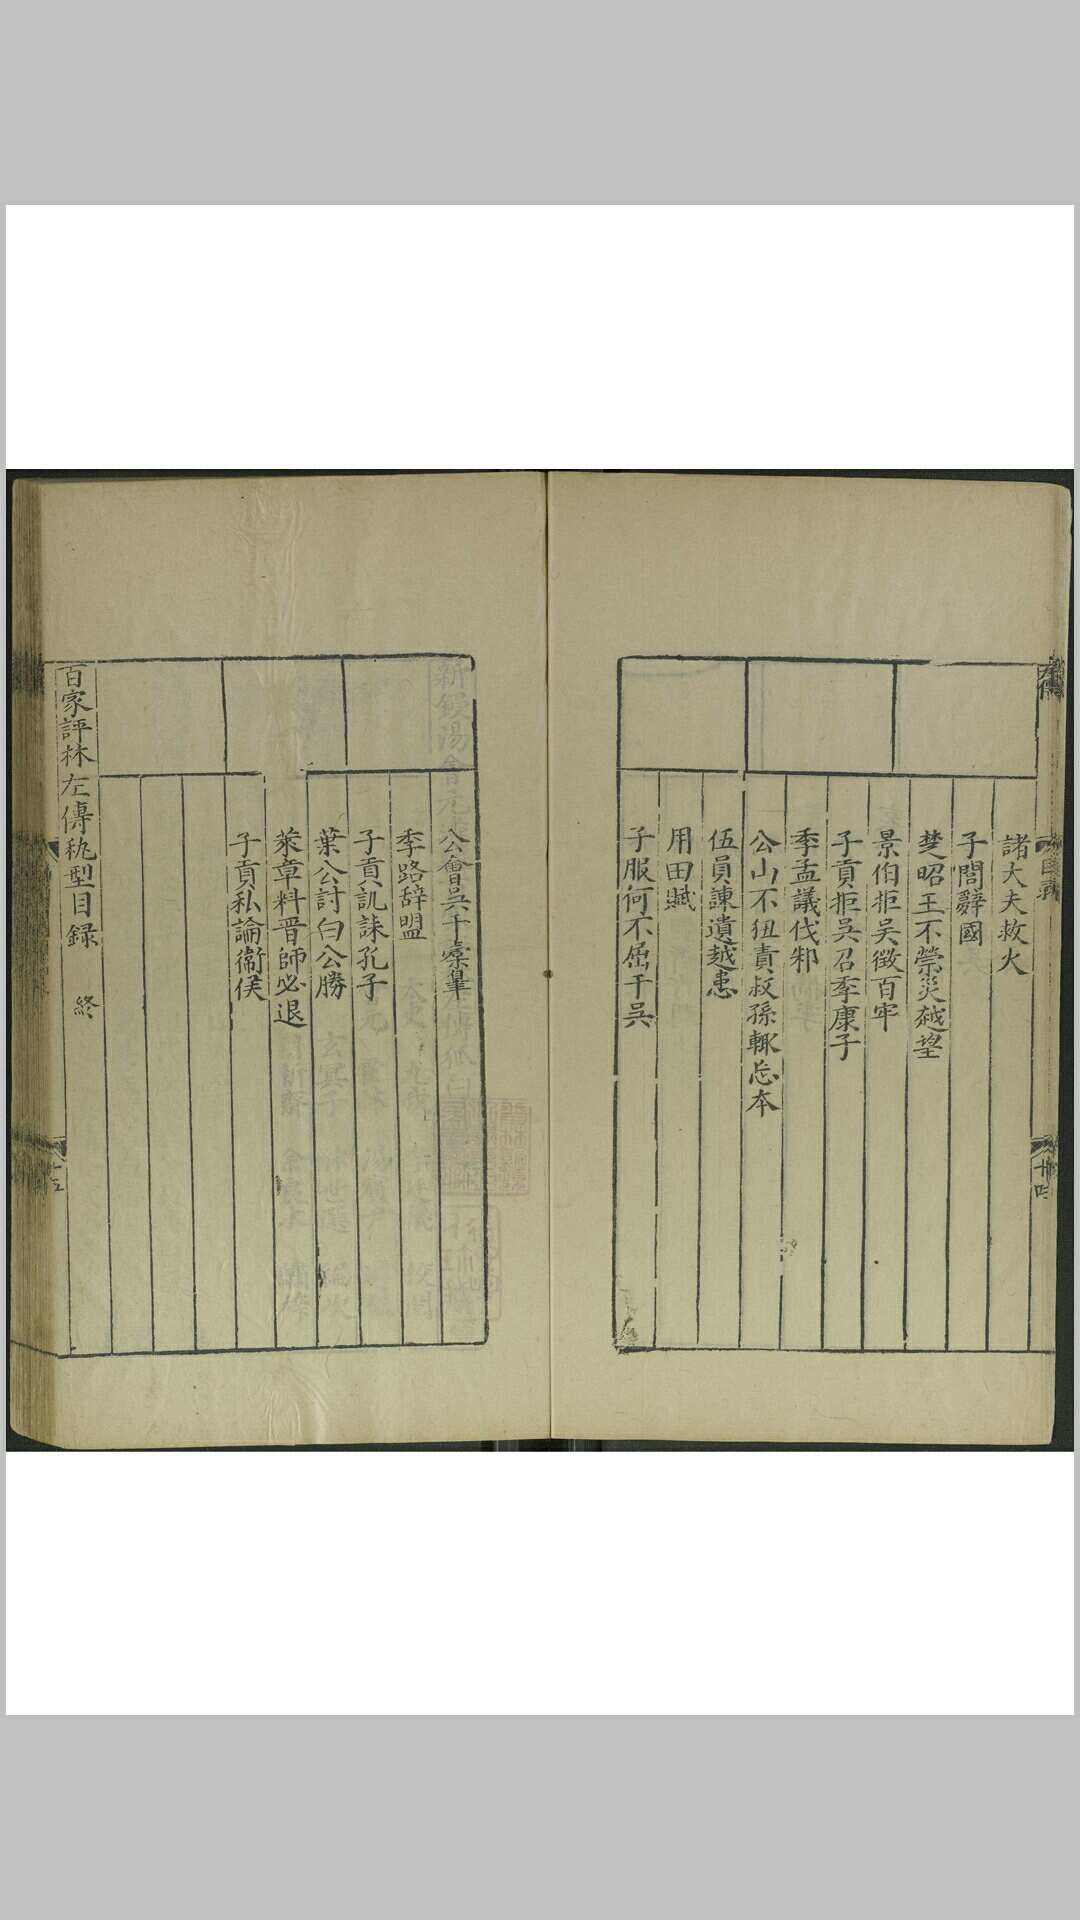 諸大夫救火
子閭辭國
楚昭王不禜災越望
景伯拒吳徵百牢
子貢拒吳召季康子
季孟議伐邾
公山不狃責叔孫輒忘本
伍員諫遺越患
用田賦
子服何不屈于吳
公會吳于橐皋
季路辞盟
子貢訊誄孔子
葉公討白公勝
萊章料晋師必退
子貢私論衞侯
百家評林左傳秇型目録 終